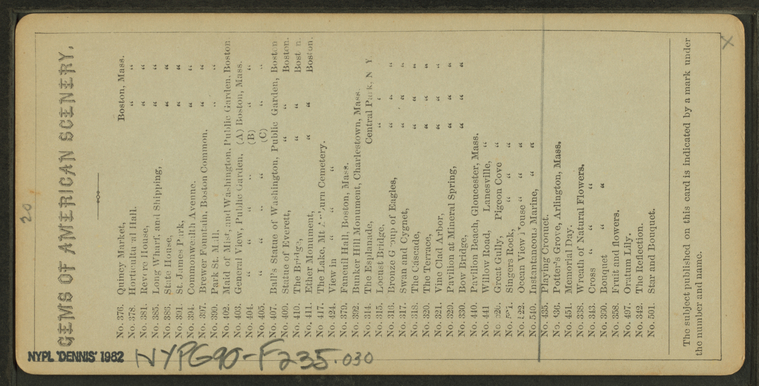 GEMS OF AMERICAN SCENERY.
No. 376. Quincy Market, Boston, Mass.
No. 378. Horticultural Hall. " "
No. 381. Revere House, " "
No. 385. Long Wharf, and Shipping, " "
No. 383. State House, " "
No. 391. St. James Park, " "
No. 394. Commonwealth Avenue. " "
No. 397. Brewer Fountain, Boston Common. " "
No. 399. Park St. Mall. " "
No. 402. Maid of Mist, and Washington. Public Garden. Boston
No. 403. General View, Public Garden. (A) Boston, Mass.
No. 404. " " " " (B) " "
No. 405. " " " " (C) " "
No. 407. Ball's Statue of Washington, Public Garden, Boston
No. 400. Statue of Everett, " " Boston.
No. 410. The Bridge, " " Boston
No. 411. Ether Monument, " " Boston.
No. 417. The Lake, Mt. Auburn Cemetery.
No. 424. View in " " "
No. 379. Faneuil Hall, Boston, Mass.
No. 392. Bunker Hill Monument, Charlestown, Mass.
No. 314. The Esplanade, Central Park, N Y
No. 315. House Bridge. " "
No. 316. Bronze Group of Eagles, " "
No. 317. Swan and Cygnet, " "
No. 319. The Cascade, " "
No. 320. The Terrace, " "
No. 321. Vine Clad Arbor, " "
No. 329. Pavilion at Mineral Spring, " "
No. 330. Bow Bridge, " "
No. 440. Pavilion Beach, Gloucester, Mass.
No. 441 Willow Road, Lanesville, "
Great Gully, Pigeon Cove "
Singers Rock, " " "
Ocean View House " "
No. 540. Instantaneous Marine, " "
No. 435. Playing Croquet.
No. 436. Potter's Grove, Arlington, Mass.
No. 451. Memorial Day.
No. 338. Wreath of Natural Flowers.
No. 343. Cross " " "
No. 350. Bouquet " "
No. 358. Fruit and flowers.
No. 497. Oratum Lily.
No. 342. The Reflection.
No. 501. Star and Bouquet.
The subject published on this card is indicated by a mark under
the number and name.
20
X
NYPL 'DENNIS' 1982
NYPG90-F235.030